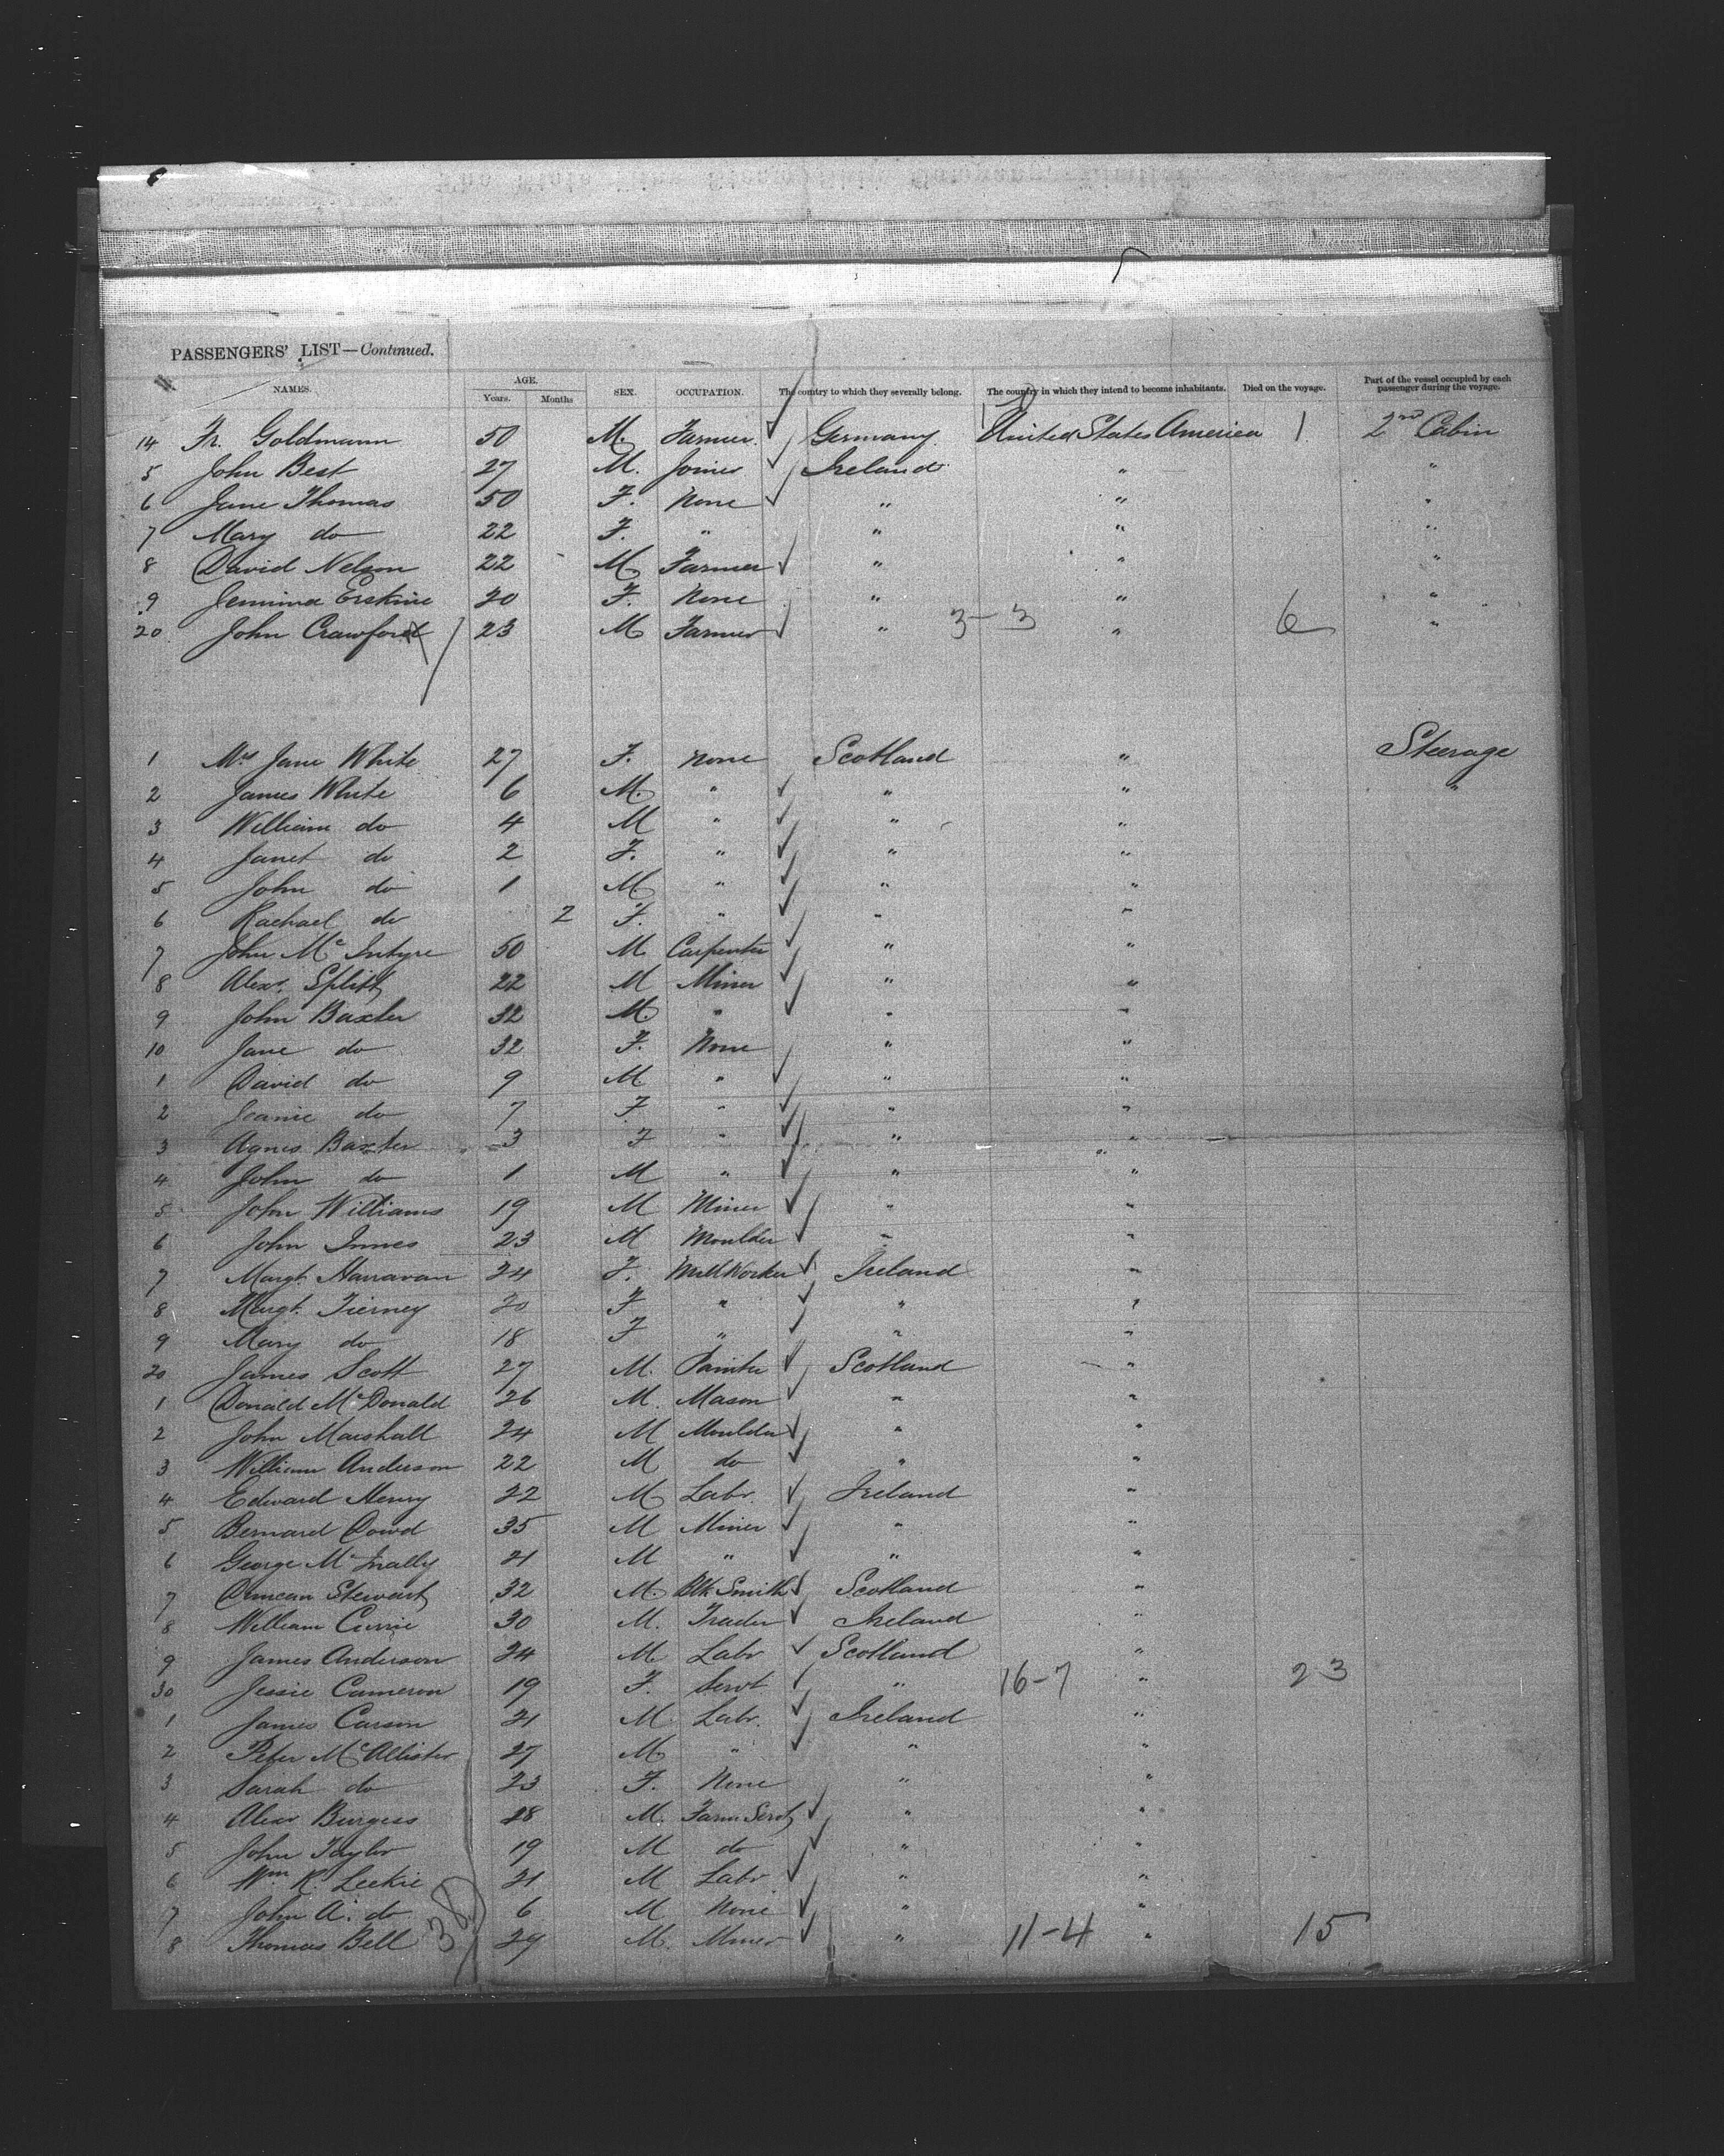 5
PASSENGERS' LIST—Continued.
NAMES. AGE. Years. Months SEX. OCCUPATION. The country to which they severally belong. The country in which they intend to become inhabitants. Died on the voyage. Part of the vessel occupied by each passenger during the voyage.
14 Fr. Goldmann 50 M. Farmer. Germany United States America 1 2nd Cabin
5 John Best 27 M. Joiner Ireland " "
6 Jane Thomas 50 F. None " " "
7 Mary do 22 F. " " " "
8 David Nelson 22 M Farmer " " "
9 Jemima Erskine 20 F. None " " "
20 John Crawford 23 M Farmer " 3-3 " 6 "
1 Mrs Jane White 27 F. None Scotland " Steerage
2 James White 6 M. " " " "
3 William do 4 M " " "
4 Janet do 2 F. " " "
5 John do 1 M " " "
6 Rachael do 2 F. " " "
7 John McIntyre 50 M Carpenter " "
8 Alexr. Splitt 22 M Miner " "
9 John Baxter 32 M. " " "
10 Jane do 32 F. None " "
1 David do 9 M " " "
2 Jeanie do 7 F " " "
3 Agnes Baxter 3 F " " "
4 John do 1 M " " "
5 John Williams 19 M Miner " "
6 John Innes 23 M Moulder " "
7 Margt. Hanavan 24 F. Mill Worker Ireland "
8 Margt. Tierney 20 F " " "
9 Mary do 18 F " " "
20 James Scott 27 M. Painter Scotland "
1 Donald McDonald 26 M. Mason " "
2 John Marshall 24 M Moulder " "
3 William Anderson 22 M do " "
4 Edward Henry 22 M Labr. Ireland "
5 Bernard Dowd 35 M Miner " "
6 George McInally 21 M " " "
7 Duncan Stewart 32 M. Blk Smith Scotland "
8 William Currie 30 M. Trader Ireland "
9 James Anderson 24 M Labr Scotland "
30 Jessie Cameron 19 F. Servt " 16-7 " 23
1 James Carson 21 M Labr. Ireland "
2 Peter McAllister 27 M " " "
3 Sarah do 23 F. None " "
4 Alexr Burgess 28 M. Farm Servt " "
5 John Taylor 19 M do " "
6 Wm. K. Leckie 21 M Labr " "
7 John A. do 6 M None " "
8 Thomas Bell 38 29 M. Miner " 11-4 " 15